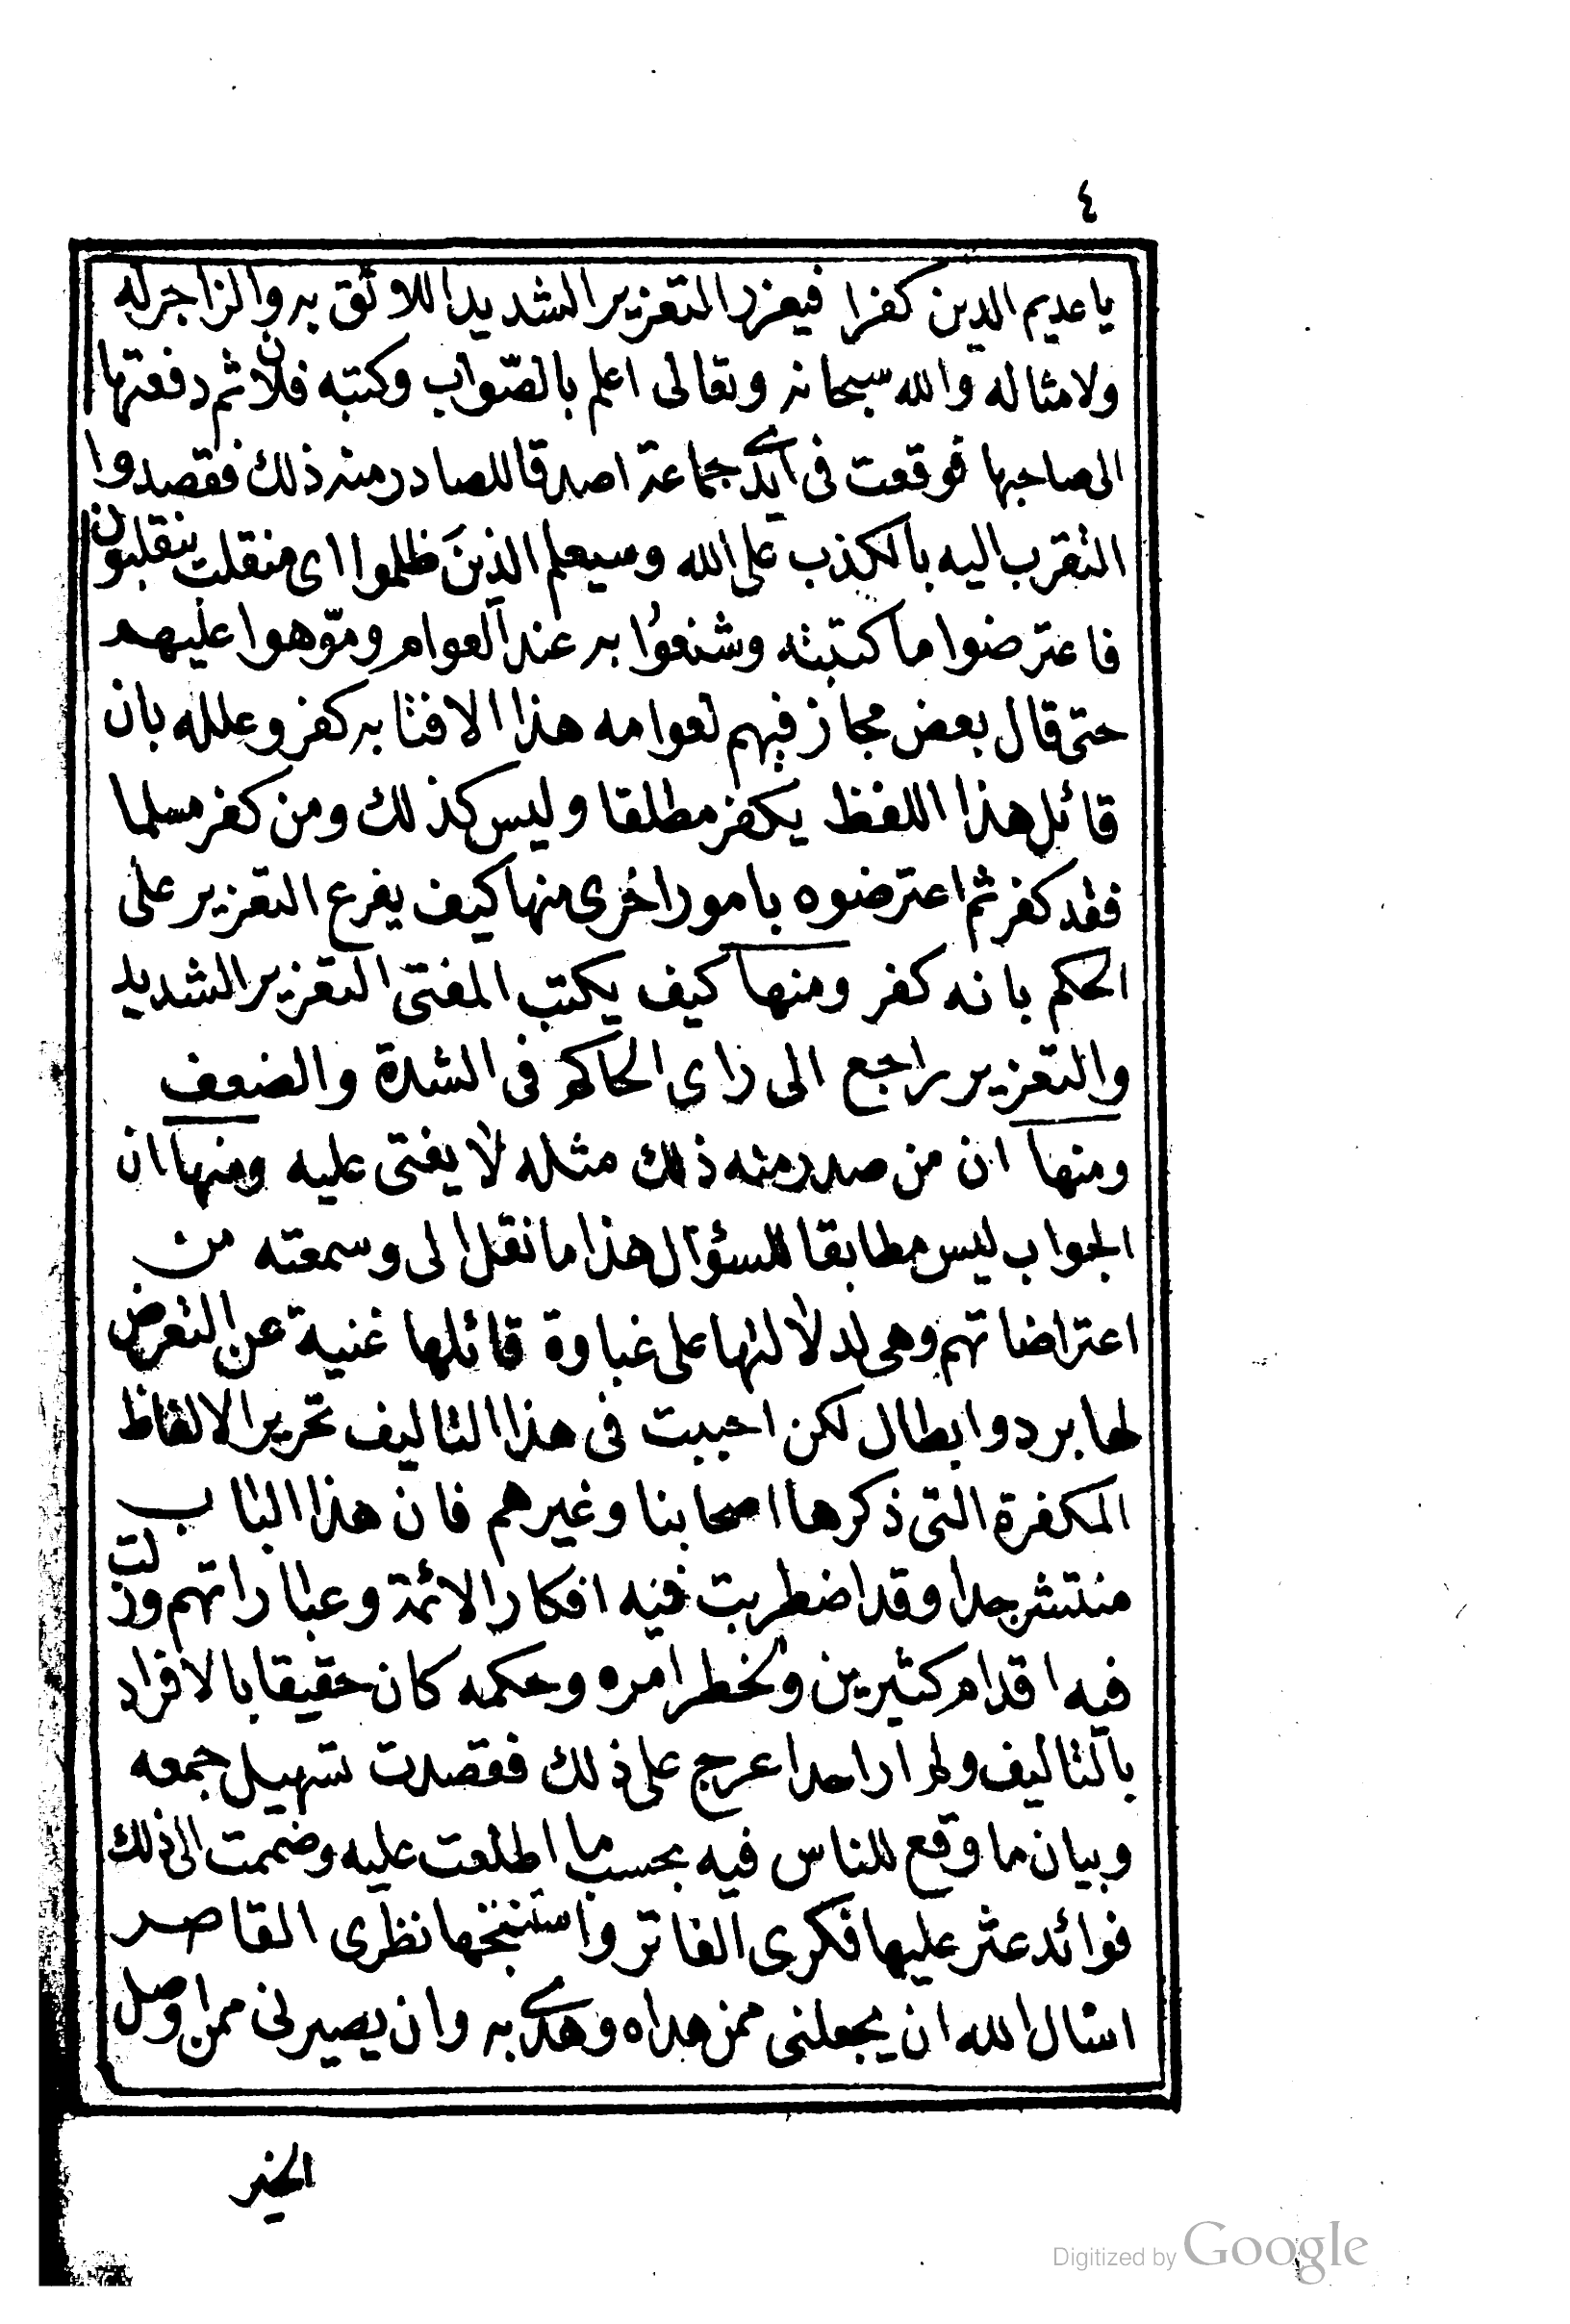 ٤
يا عديم الدين كفرا فيعزر التعزير الشديد اللائق به والزاجر له
ولامثاله والله سبحانه وتعالى اعلم بالصّواب وكتبه فلان ثم دفعتها
الى صاحبها فوقعت فى ايدى جماعة اصدقا للصادر منه ذلك فقصدوا
التقرب اليه بالكذب على الله وسيعلم الذينَ ظلموا اى منقلب ينقلبون
فاعترضوا ما كتبته وشنعوا به عند العوام وموّهوا عليهم
حتى قال بعض مجازفيهم لعوامه هذا الافتا به كفر وعلله بان
قائل هذا اللفظ يكفر مطلقا وليس كذلك ومن كفر مسلما
فقد كفر ثم اعترضوه بامور اخرى منها كيف يفرع التعزير على
الحكم بانه كفر ومنها كيف يكتب المفتى التعزير الشديد
والتعزير راجع الى راى الحاكم فى الشدة والضعف
ومنها ان من صدر منه ذلك مثله لا يفتى عليه ومنها ان
الجواب ليس مطابقا للسؤال هذا ما نقل الى وسمعته من
اعتراضاتهم وهى لدلالتها على غباوة قائلها غنية عن التعرض
لها برد وابطال لكن احببت فى هذا التاليف تحرير الالفاظ
المكفرة التى ذكرها اصحابنا وغيرهم فان هذا الباب
منتشر جدا وقد اضطربت فيه افكار الائمة وعباراتهم وزلت
فيه اقدام كثيرين ولخطر امره وحكمه كان حقيقا بالافراد
بالتاليف ولم ار احدا عرج على ذلك فقصدت تسهيل جمعه
وبيان ما وقع للناس فيه بحسب ما اطلعت عليه وضممت الى ذلك
فوائد عثر عليها فكرى الفاتر واستنتجها نظرى القاصر
اسال الله ان يجعلنى ممن هداه وهدى به وان يصيرنى ممن اوصل
الخير
Digitized by Google